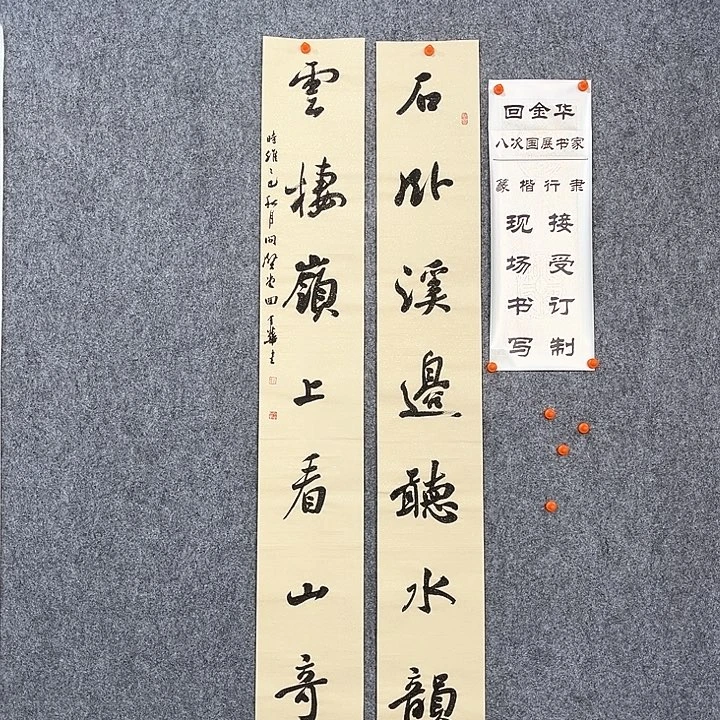 石卧溪邊聽水韻
雲棲嶺上看山奇
時維乙巳秋月問
回金华
八次国展书家
篆楷行隶
接受订制
现场书写